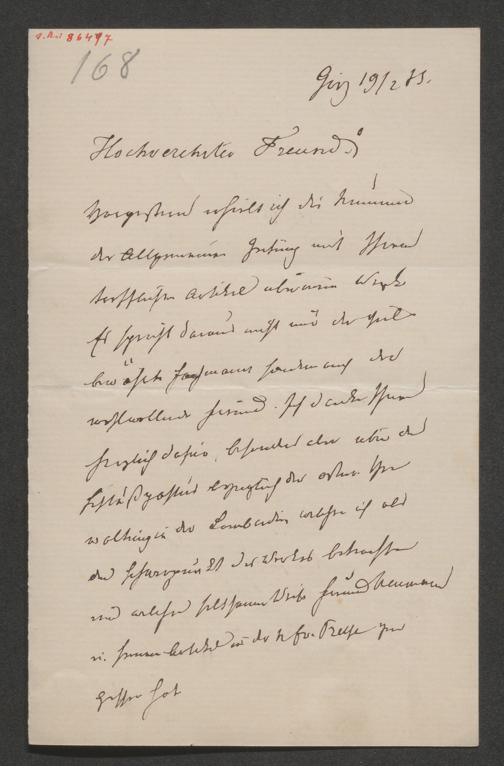 168
19/2 85.
Hochverehrter Freund!
Vorgestern erhielt ich die Nummer
der Allgemeinen Zeitung mit Ihrem
Artikel über mein Werk
Es spricht daraus nicht nur der
Fachmann sondern auch der
wohlwollende Freund. Ich danke Ihnen
herzlich dafür, besonders aber über den
bezüglich der österr Ver
waltung in der Lombardie welche ich als
den Schwerpunkt des Werkes betrachte
und welche seltsamer Weise Freund
in seinem Artikel in der N fr. Presse
hat